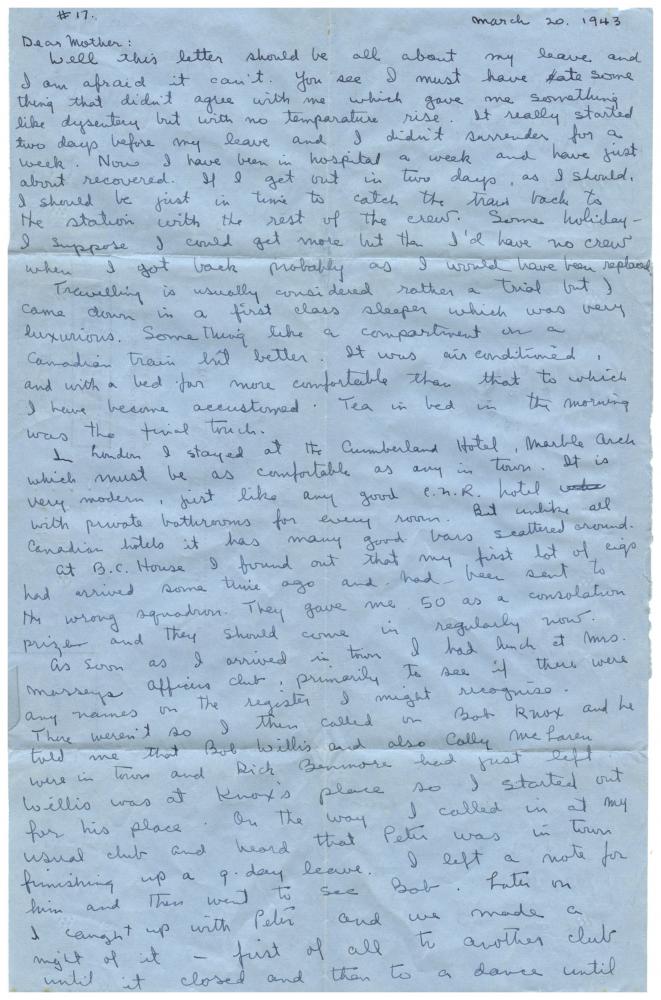 #17.
March 20. 1943
Dear Mother:
Well this letter should be all about my leave and
I am afraid it can't. You see I must have ate some
thing that didn't agree with me which gave me something
like dysentery but with no temperature rise. It really started
two days before my leave and I didn't surrender for a
week. Now I have been in hospital a week and have just
about recovered. If I get out in two days, as I should,
I should be just in time to catch the train back to
the station with the rest of the crew. Some holiday –
I suppose I could get more but then I'd have no crew
when I got back probably as I would have been replaced.
Travelling is usually considered rather a trial but I
came down in a first class sleeper which was very
luxurious. Something like a compartment on a
Canadian train but better. It was air conditioned,
and with a bed far more comfortable than that to which
I have become accustomed. Tea in bed in the morning
was the final touch.
In London I stayed at the Cumberland Hotel, Marble Arch
which must be as comfortable as any in town. It is
very modern, just like any good C.N.R. hotel
with private bathrooms for every room. But unlike all
Canadian hotels it has many good bars scattered around.
At B.C. House I found out that my first lot of cigs
had arrived some time ago and had been sent to
the wrong squadron. They gave me 50 as a consolation
prize and they should come in regularly now.
As soon as I arrived in town I had lunch at Mrs.
Masseys Officers club, primarily to see if there were
any names on the register I might recognise.
There weren't so I then called on Bob Knox and he
told me that Bob Willis and also Cally McLaren
were in town and Rick Benmore had just left.
Willis was at Knox's place so I started out
for his place. On the way I called in at my
usual club and heard that Peter was in town
finishing up a 9. day leave. I left a note for
him and then went to see Bob. Later on
I caught up with Peter and we made a
night of it – first of all to another club
until it closed and then to a dance until